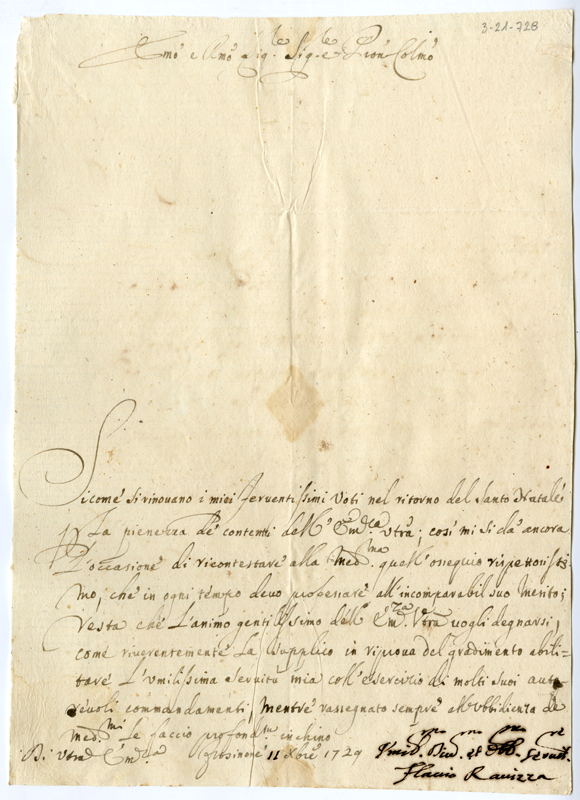 3-21-728
Emo e Rmo Sig.re Sig.re e Pron Colmo
Sicome si rinouano i miei feruentissimi Voti nel ritorno del Santo Natale
p La pienezza de contenti dell' Em.za Vtra; così mi si dà ancora
L'occasione di ricontestare alla Med.ma quell' ossequio rispettosissi-
mo, che in ogni tempo deuo professare all' incomparabil suo Merito;
resta che L'animo gentilissimo dell' Em.za Vtra uogli degnarsi,
come riuerentemente La supplico in riproua del gradimento abili-
tare L'umilissima seruitù mia coll' esercizio di molti suoi auto-
reuoli commandamenti, mentre rassegnato sempre all' Vbbidienza de
Med.mi Le faccio profond.mo inchino
Di Vtra Em.za Frosinone 11 Xbre 1729
Vmil.mo Diu.mo et Obb.mo Seru.re
Flauio Rauizza